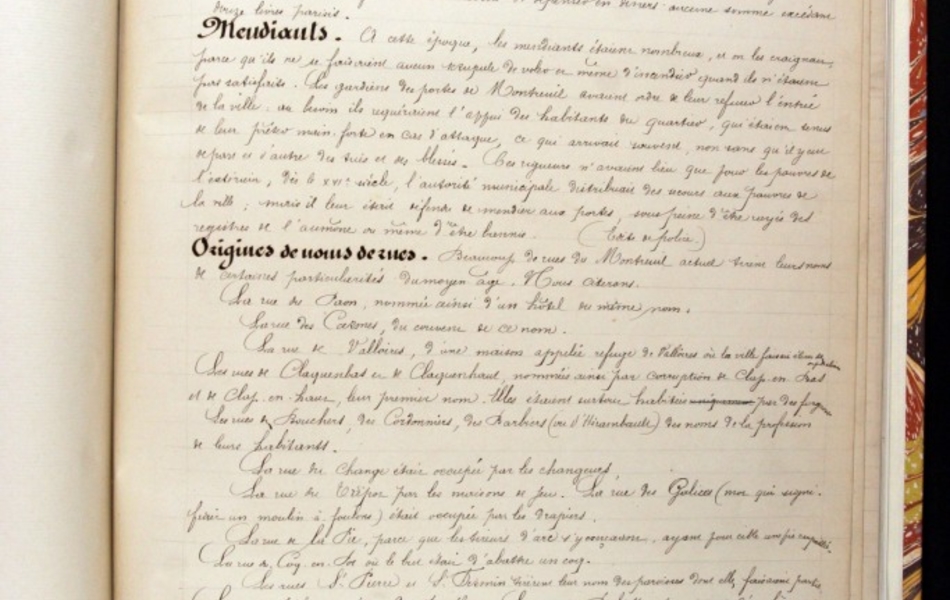 douze livres parisis.
Mendiants. A cette époque, les mendiants étaient nombreux, et on les craignait,
parce qu'ils ne se faisaient aucun scrupule de voler et même d'incendier quand ils n'étaient
pas satisfaits. Les gardiens des portes de Montreuil avaient ordre de leur refuser l'entrée
de la ville ; au besoin ils requéraient l'appui des habitants du quartier, qui étaient tenus
de leur prêter main-forte en cas d'attaque, ce qui arrivait souvent, non sans qu'il y eut
de part et d'autre des tués et des blessés. Ces rigueurs n'avaient lieu que pour les pauvres de
l'extérieur ; dès le XVIe siècle, l'autorité municipale distribuait des secours aux pauvres de
la ville ; mais il leur était défendu de mendier aux portes, sous peine d'être rayés des
registres de l'aumône ou même d'être bannis. (Edits de police.)
Origines de noms de rues. Beaucoup de rues du Montreuil actuel tirent leurs noms
de certaines particularités du moyen âge. Nous citerons.
La rue du Paon, nommée ainsi d'un hôtel du même nom.
La rue des Carmes, du couvent de ce nom.
La rue de Valloires, d'une maison appelée refuge de Valloires où la ville faisait
Les rues de Claquenbas et de Claquenhaut, nommées ainsi par corruption de Clap-en-bas
et de Clap-en-haut, leur premier nom. Elles étaient surtout habitées par des forgerons
Les rues des Bouchers, des Cordonniers, des Barbiers (ou d'Hérambault) des noms de la profession
de leurs habitants.
La rue du Change était occupée par les changeurs.
La rue du Tripot par les maisons de jeu. La rue des Galices (mot qui signi-
fiait un moulin à foulons) était occupée par les drapiers.
La rue de la Pie, parce que les tireurs d'arc s'y ayant pour cible une pie
La rue du Coq, où le but était d'abattre un coq.
Les rues St. Pierre et St. Firmin tirèrent leur nom des paroisses dont elles faisaient partie